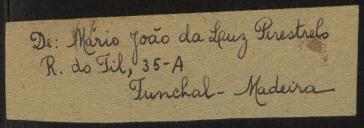 De: Mário João da Luz Perestrelo
R. do Til, 35-A
Funchal - Madeira